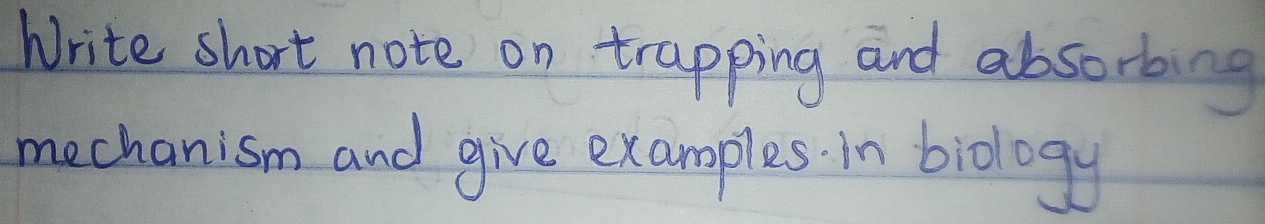 Write short note on trapping and absorbing
mechanism and give examples. in biology